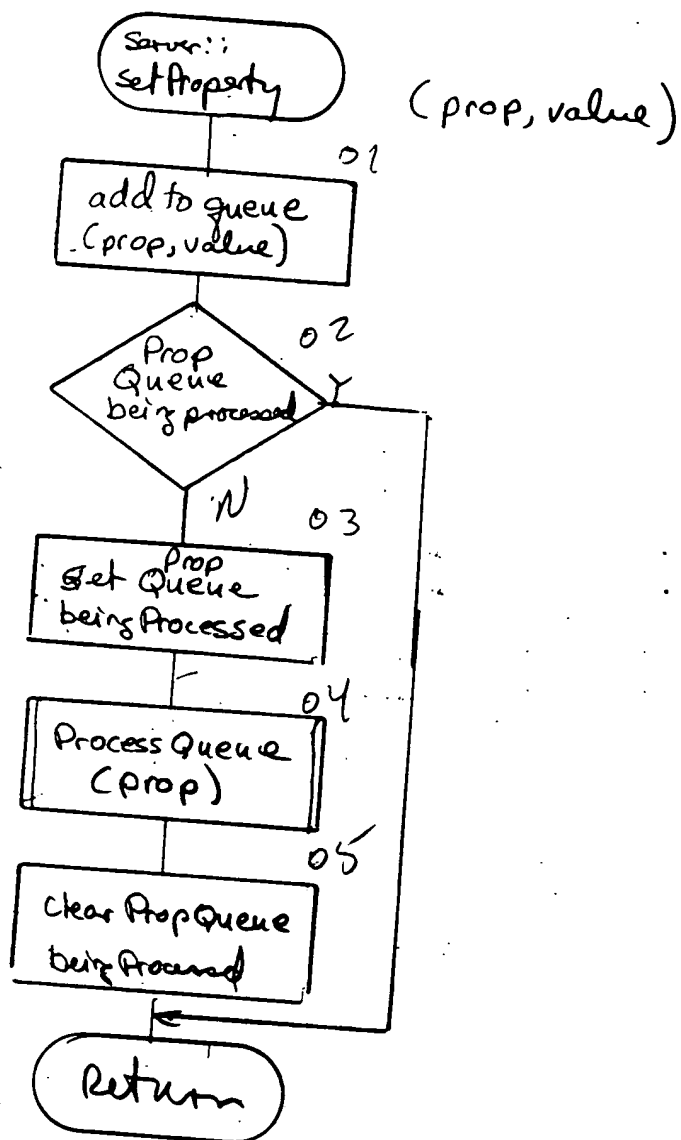 Server::
setProperty
(prop, value)
01
add to queue
(prop, value)
02
Prop
Queue
being processed
Y
N
03
Prop
set Queue
being Processed
04
Process Queue
(prop)
05
Clear Prop Queue
being Processed
Return